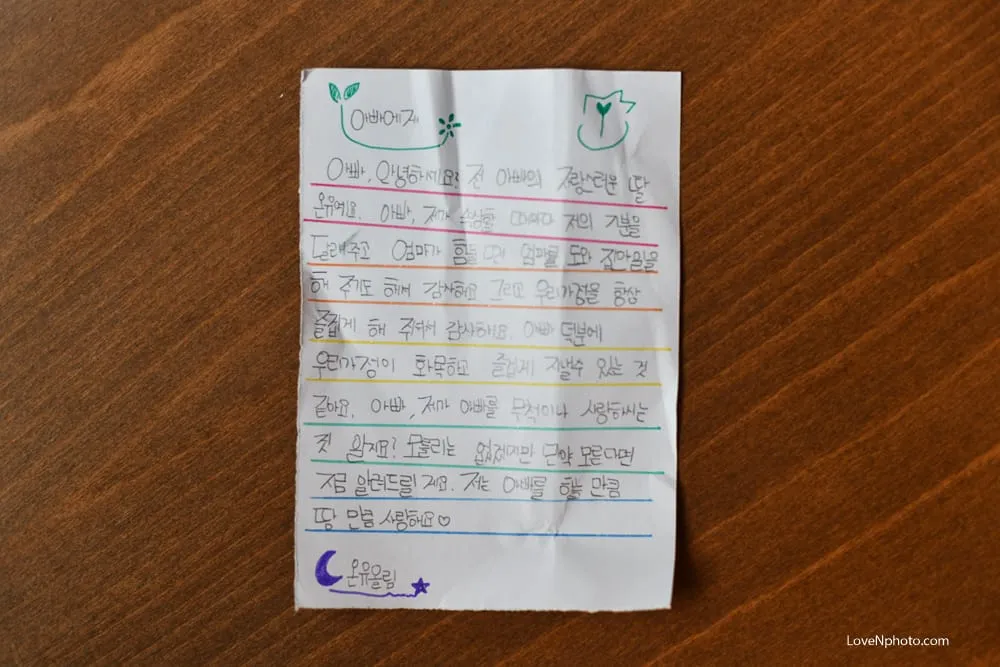 아빠에게
아빠, 안녕하세요? 전 아빠의 자랑스러운 딸
온유에요. 아빠, 제가 속상할 때마다 저의 기분을
달래주고 엄마가 힘들 때 엄마를 도와 집안일을
해 주기도 해서 감사해요 그리고 우리가정을 항상
즐겁게 해 주셔서 감사해요. 아빠 덕분에
우리가정이 화목하고 즐겁게 지낼수 있는 것
같아요. 아빠, 제가 아빠를 무척이나 사랑하시는
것 알지요? 모를리는 없겠지만 만약 모른다면
지금 알려드릴게요. 저는 아빠를 하늘 만큼
땅 만큼 사랑해요♡
온유올림
LoveNphoto.com